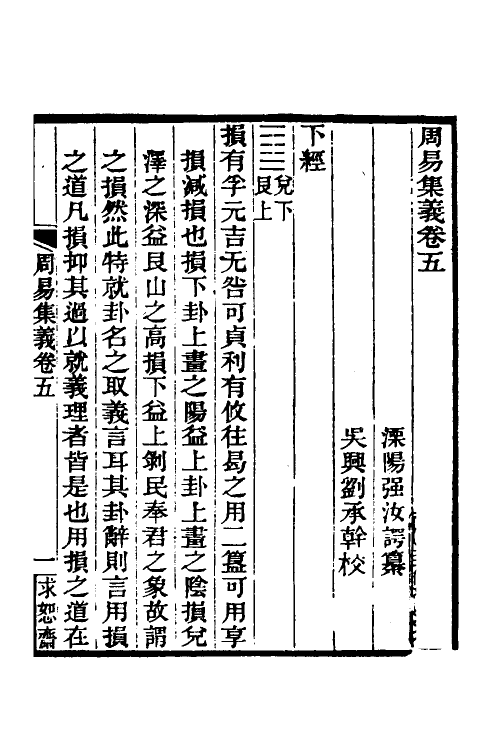 周易集義卷五
溧陽强汝諤纂
吳興劉承幹校
下經
兌下
艮上
損有孚元吉无咎可貞利有攸往曷之用二簋可用享
損減損也損下卦上畫之陽益上卦上畫之陰損兌
澤之深益艮山之高損下益上剝民奉君之象故謂
之損然此特就卦名之取義言耳其卦辭則言用損
之道凡損抑其過以就義理者皆是也用損之道在
周易集義卷五
一
求恕齋